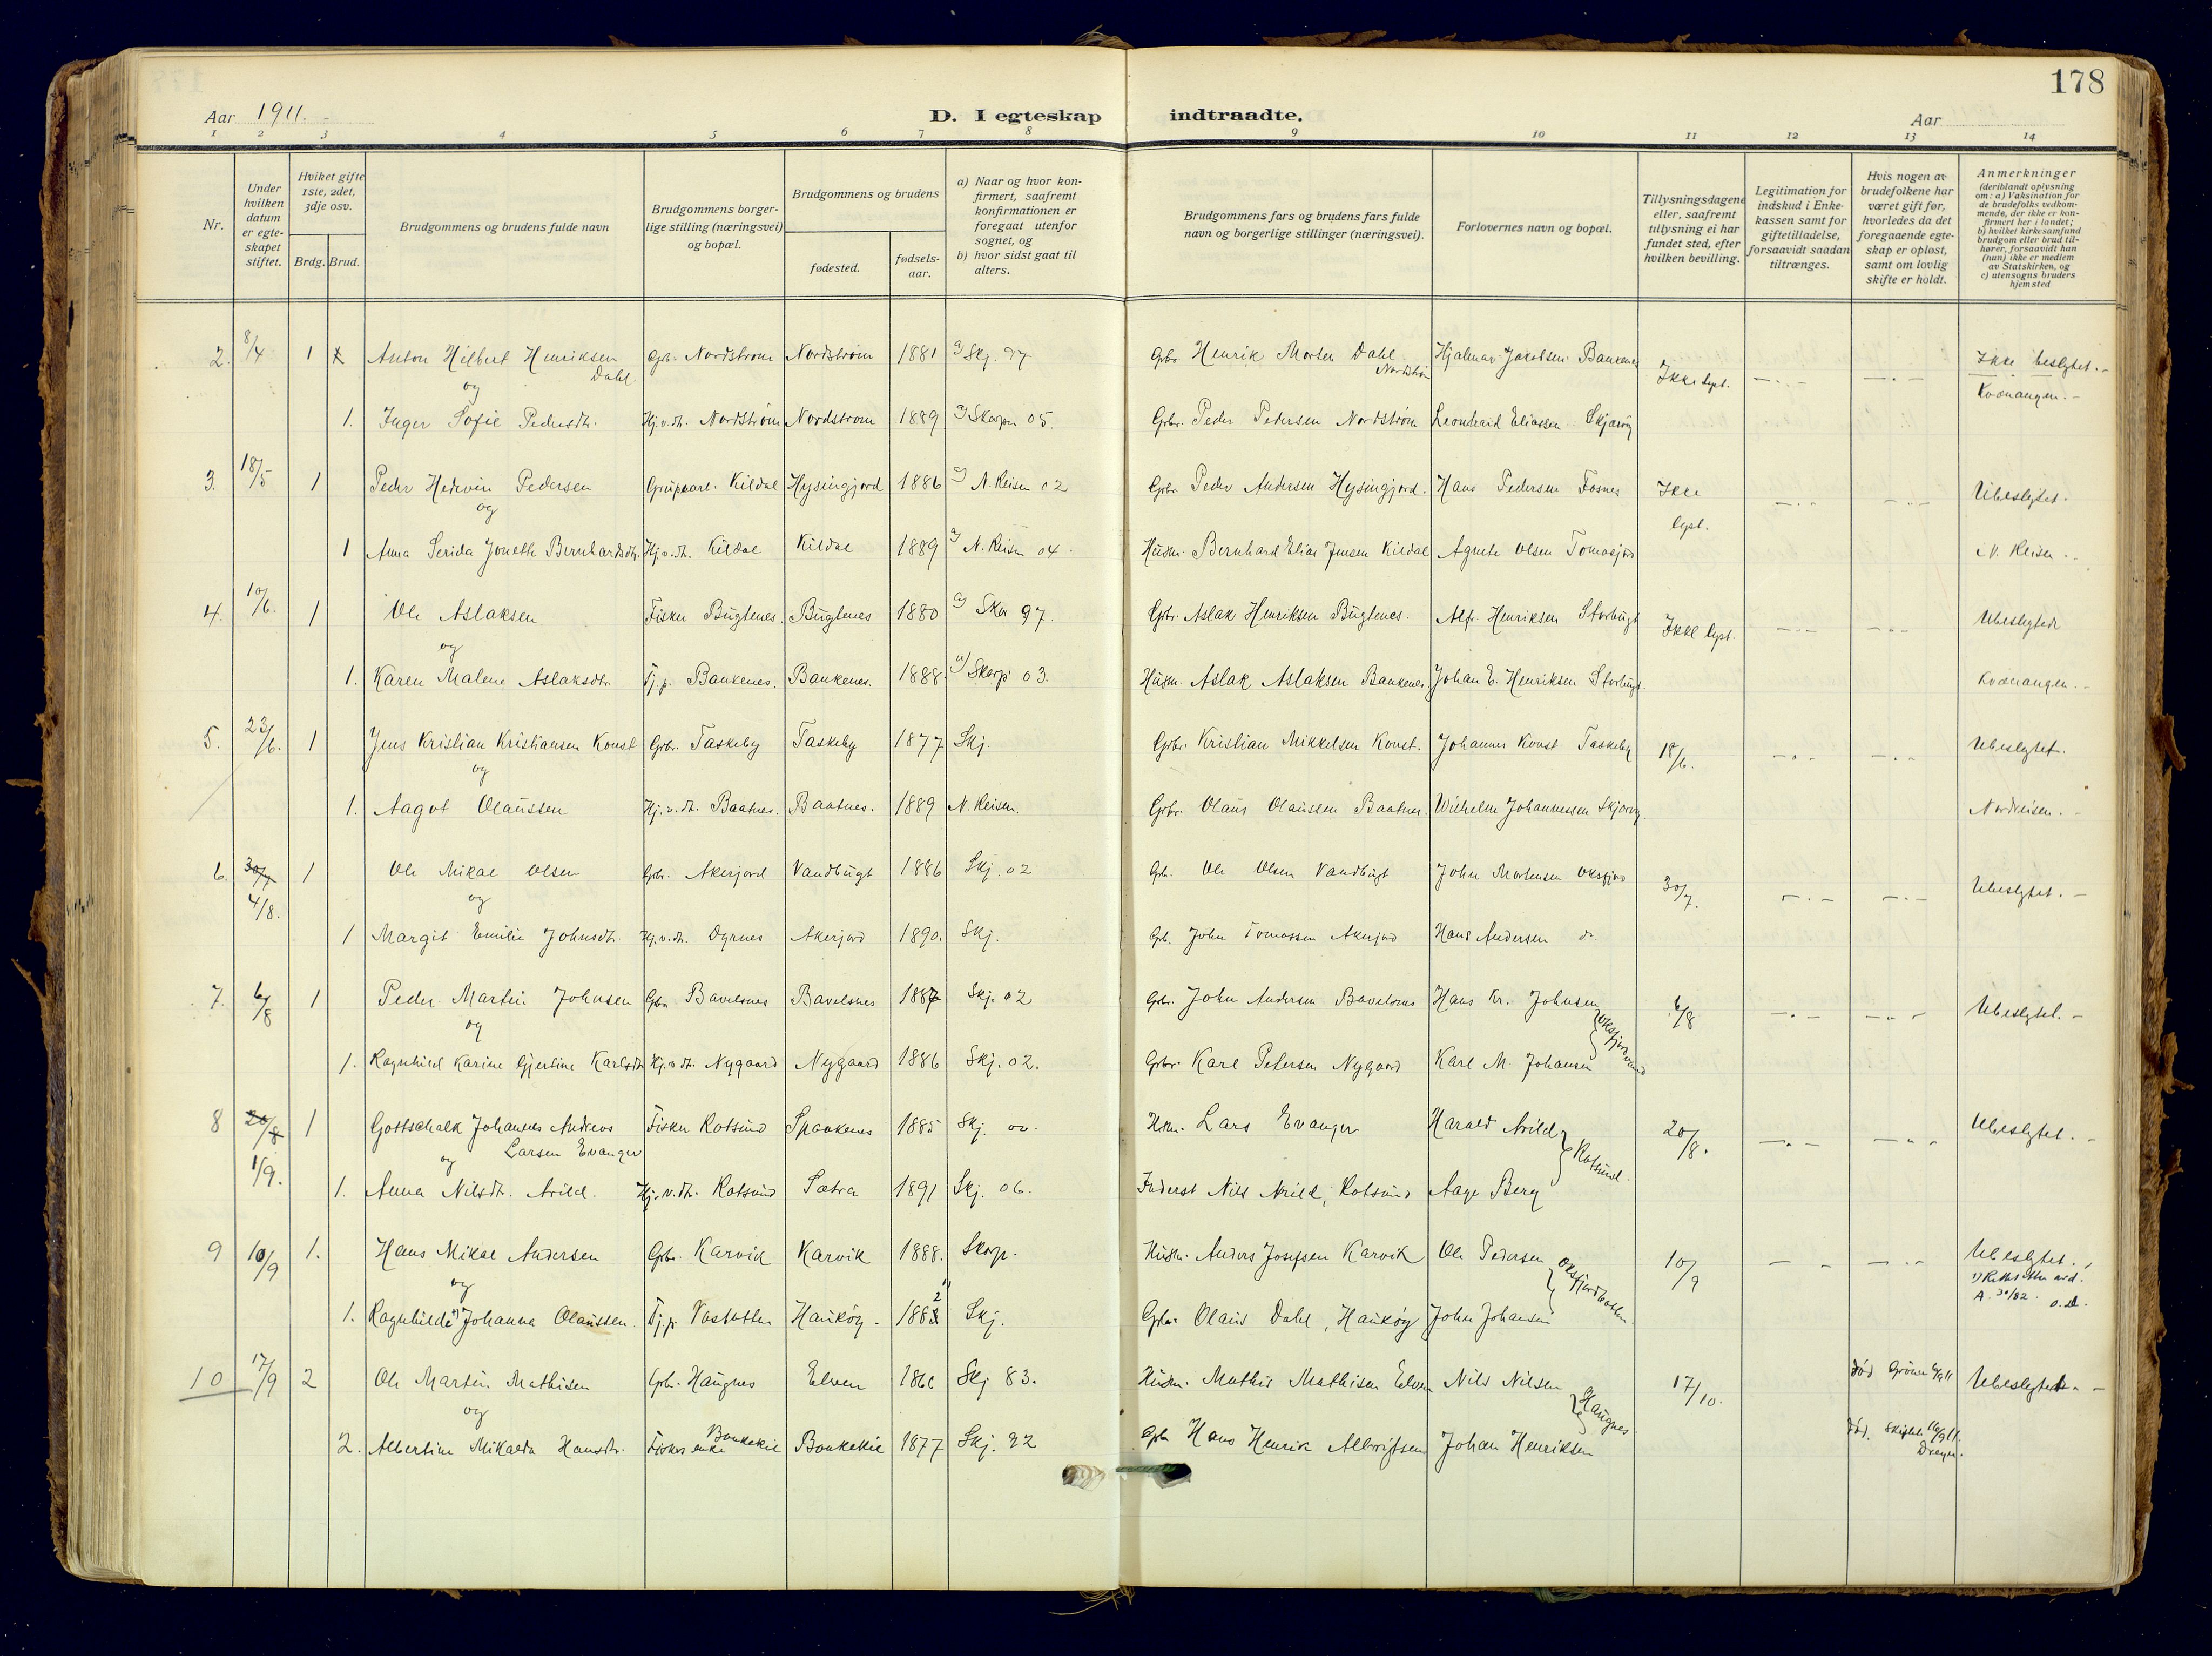 178
Aar 1911. D. I egteskap indtraadte. Aar
1 2 3 4 5 6 7 8 9 10 11 12 13 14
Nr.
Under hvilken datum er egteskapet stiftet.
Hviket gifte 1ste, 2det, 3dje osv.
Brdg. Brud.
Brudgommens og brudens fulde navn
Brudgommens borgerlige stilling (næringsvei) og bopæl.
Brudgommens og brudens
fødested.
fødselsaar.
a) Naar og hvor konfirmert, saafremt konfirmationen er foregaat utenfor sognet, og
b) hvor sidst gaat til alters.
Brudgommens fars og brudens fars fulde navn og borgerlige stillinger (næringsvei).
Forlovernes navn og bopæl.
Tillysningsdagene eller, saafremt tillysning ei har fundet sted, efter hvilken bevilling.
Legitimation for indskud i Enkekassen samt for giftetilladelse, forsaavidt saadan tiltrænges.
Hvis nogen av brudefolkene har været gift før, hvorledes da det foregaaende egteskap er opløst, samt om lovlig skifte er holdt.
Anmerkninger (deriblandt oplysning om: a) Vaksination for de brudefolks vedkommende, der ikke er konfirmert her i landet; b) hvilket kirkesamfund brudgom eller brud tilhører, forsaavidt han (hun) ikke er medlem av Statskirken, og c) utensogns bruders hjemsted
2. 8/4 1 Anton Hilbert Henriksen Dahl Gbr. Nordstrøm Nordstrøm 1881 a) Skj. 97 Gbr. Henrik Morten Dahl Nordstrøm Hjalmar Jakobsen Baukenes Ikke lyst. Ikke beslegtet. -
og Kvænangen. -
1. Inger Sofie Pedersdtr. Hj.v.dt. Nordstrøm Nordstrøm 1889 a) Skorpen 05. Grbr. Peder Pedersen Nordstrøm Leonhard Eliassen Skjærvøy
3. 18/5 1 Peder Hedevin Pedersen Kildal Hysingjord 1886 a) N. Reisen 02 Grbr. Peder Andersen Hysingjord. Hans Pedersen Fosnes Ikke lyst. Ubeslegtet.
og
1 Anna Serida Jonette Bernhardsdtr. Hj.v.dt. Kildal Kildal 1889 a) N. Reisen 04. Husm. Bernhard Elias Jensen Kildal Agnete Olsen Tomasjord N. Reisen. -
4. 10/6. 1 Ole Aslaksen Fisker Bugtenes. Bugtenes 1880 a) Skor 97. Grbr. Aslak Henriksen Bugtenes. Alfr. Henriksen Storbugt Ikke lyst. Ubeslegtede
og
1. Karen Malene Aslaksdtr. Tj.p. Baukenes. Baukenes. 1888. a) Skorp 03. Husm. Aslak Aslaksen Baukenes Johan E. Henriksen Storbugt. Kvænangen. -
5. 23/6. 1 Jens Kristian Kristiansen Konst Grbr. Taskeby Taskeby 1877 Skj. Grbr. Kristian Mikkelsen Konst. Johannes Konst Taskeby 18/6. Ubeslegtet.
og
1. Aagot Olaussen Hj.v.dt. Baatnes. Baatnes. 1889 N. Reisen. Grbr. Olaus Olaussen Baatnes. Wilhelm Johannessen Skjærvøy. Nordreisen. -
6. 30/7 4/8. 1 Ole Mikal Olsen Gbr. Akerjord Vandbugt 1886 Skj. 02 Gb. Ole Olsen Vandbugt John Mortensen Oksfjord 30/7. Ubeslegtet. -
og
1 Margit Emilie Johnsdtr. Hj.v.dt. Dyrnes Akerjord 1890. Skj. Gb. John Tomassen Akerjord Hans Andersen do
7. 6/8 1 Peder Martin Johnsen Gbr. Bavelsnes Bavelsnes 1887 Skj. 02 Grbr. John Andersen Bavelsnes Hans Kr. Johnsen 6/8 Ubeslegtet. -
og Oksfjord
1. Ragnhild Karine Gjertine Karlsdtr Hj.v.dt. Nygaard Nygaard 1886 Skj. 02. Grbr. Karl Petersen Nygaard Karl M. Johansen
8 20/8 1/9. 1 Gottschalk Johannes Andreas Larsen Evanger Fisker Rotsund Spaakenes 1885 Skj. 00. Husm. Lars Evanger Harald Arild 20/8. Ubeslegtet. -
og Rotsund.
1. Anna Nilsdt. Arild. Hj.v.dt. Rotsund Sætra 1891 Skj. 06. Inderst Nils Arild, Rotsund Aage Berg
9 10/9 1. Hans Mikal Andersen Grbr. Karvik Karvik 1888. Skorp. Husm. Anders Josefsen Karvik Ole Pedersen 10/9 Ubeslegtet.
og Oksfjordbotn.
1. Ragnhilde Johanna Olaussen. Tj.p. Haukøy - 1882 Skj. Grbr. Olaus Dahl, Haukøy John Johansen
10 17/9 2 Ole Martin Mathisen Grb. Haugnes Elven 186 Skj 83. Husm. Mathis Mathisen Elven Nils Nilsen 17/10. død Ubeslegtet. -
og Haugnes
2. Albertine Mikalda Hansdtr. Fiskers enke Baukekil Baukekil 1877 Skj. 92 Gbr Hans Henrik Albrigtsen Johan Henriksen død. 16/9 11